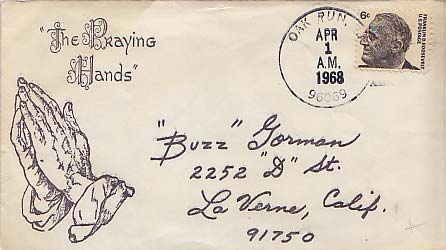 "The Praying
Hands"
OAK RUN,
APR
1
A.M.
1968
96069
6c
FRANKLIN D. ROOSEVELT
U.S. POSTAGE
"Buzz" Gorman
2252 "D" St.
La Verne, Calif.
91750